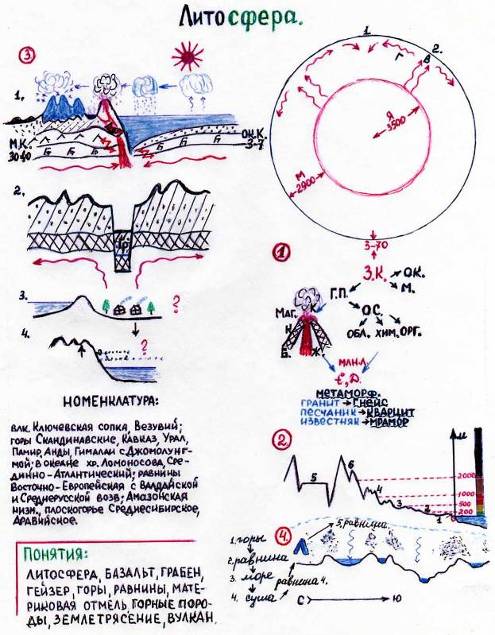 Литосфера.
3
1.
М.К.
30-40
Б Б Б Б Б
ОК.К.
3-7
2.
Гр.
3.
?
4.
?
1.
2.
Г
В
Я
3500
М
2900
3-70
1
З.К.
ОК.
М.
Г.П.
Маг.
ОС.
ОБЛ. ХИМ. ОРГ.
Н
Б.
Ж.
МЛН.Л.
t°, Д.
МЕТАМОРФ.
ГРАНИТ → ГНЕЙС
ПЕСЧАНИК → КВАРЦИТ
ИЗВЕСТНЯК → МРАМОР
НОМЕНКЛАТУРА:
ВЛК. КЛЮЧЕВСКАЯ СОПКА, ВЕЗУВИЙ;
ГОРЫ СКАНДИНАВСКИЕ, КАВКАЗ, УРАЛ,
ПАМИР, АНДЫ, ГИМАЛАИ С ДЖОМОЛУНГ-
МОЙ; В ОКЕАНЕ ХР. ЛОМОНОСОВА, СРЕ-
ДИННО-АТЛАНТИЧЕСКИЙ; РАВНИНЫ
ВОСТОЧНО-ЕВРОПЕЙСКАЯ С ВАЛДАЙСКОЙ
И СРЕДНЕРУССКОЙ ВОЗВ; АМАЗОНСКАЯ
НИЗМ., ПЛОСКОГОРЬЕ СРЕДНЕСИБИРСКОЕ,
АРАВИЙСКОЕ.
ПОНЯТИЯ:
ЛИТОСФЕРА, БАЗАЛЬТ, ГРАБЕН,
ГЕЙЗЕР, ГОРЫ, РАВНИНЫ, МАТЕ-
РИКОВАЯ ОТМЕЛЬ, ГОРНЫЕ ПОРО-
ДЫ, ЗЕМЛЕТРЯСЕНИЕ, ВУЛКАН.
2
М
6
5
4
3
2
1
2000
1000
500
200
4
5. равнина
1. горы
2. равнина
3. море
4. суша
равнина 4.
С → Ю